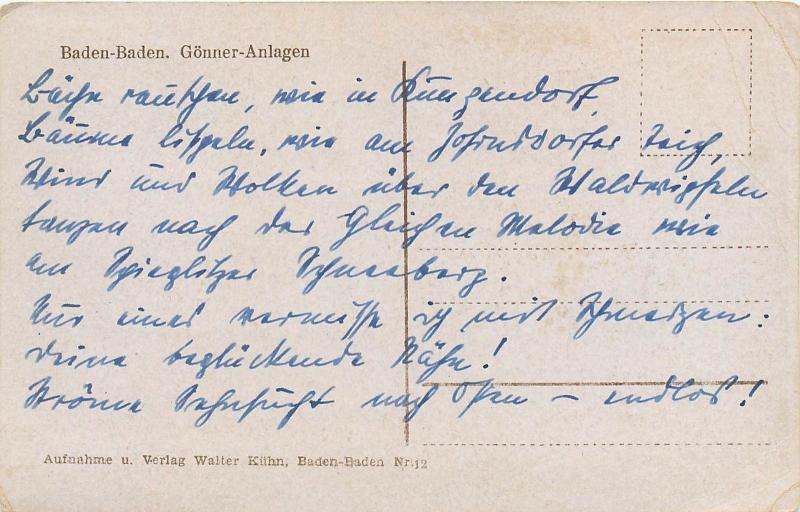 Baden-Baden. Gönner-Anlagen
Bäche rauschen, wie in Kunzendorf,
Bäume lispeln, wie am Johrnsdorfer Teich,
Wind und Wolken über den Waldwipfeln
tanzen nach der gleichen Melodie wie
am Spieglitzer Schneeberg.
Nur eines vermisse ich mit Schmerzen:
Deine beglückende Nähe!
Ströme Sehnsucht nach Osten – endlos!
Aufnahme u. Verlag Walter Kühn, Baden-Baden Nr. 12